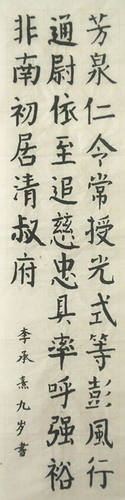 芳泉仁令常授光式等彭風行
通尉依至追慈忠具率呼强裕
非南初居清叔府
李承熹九岁書